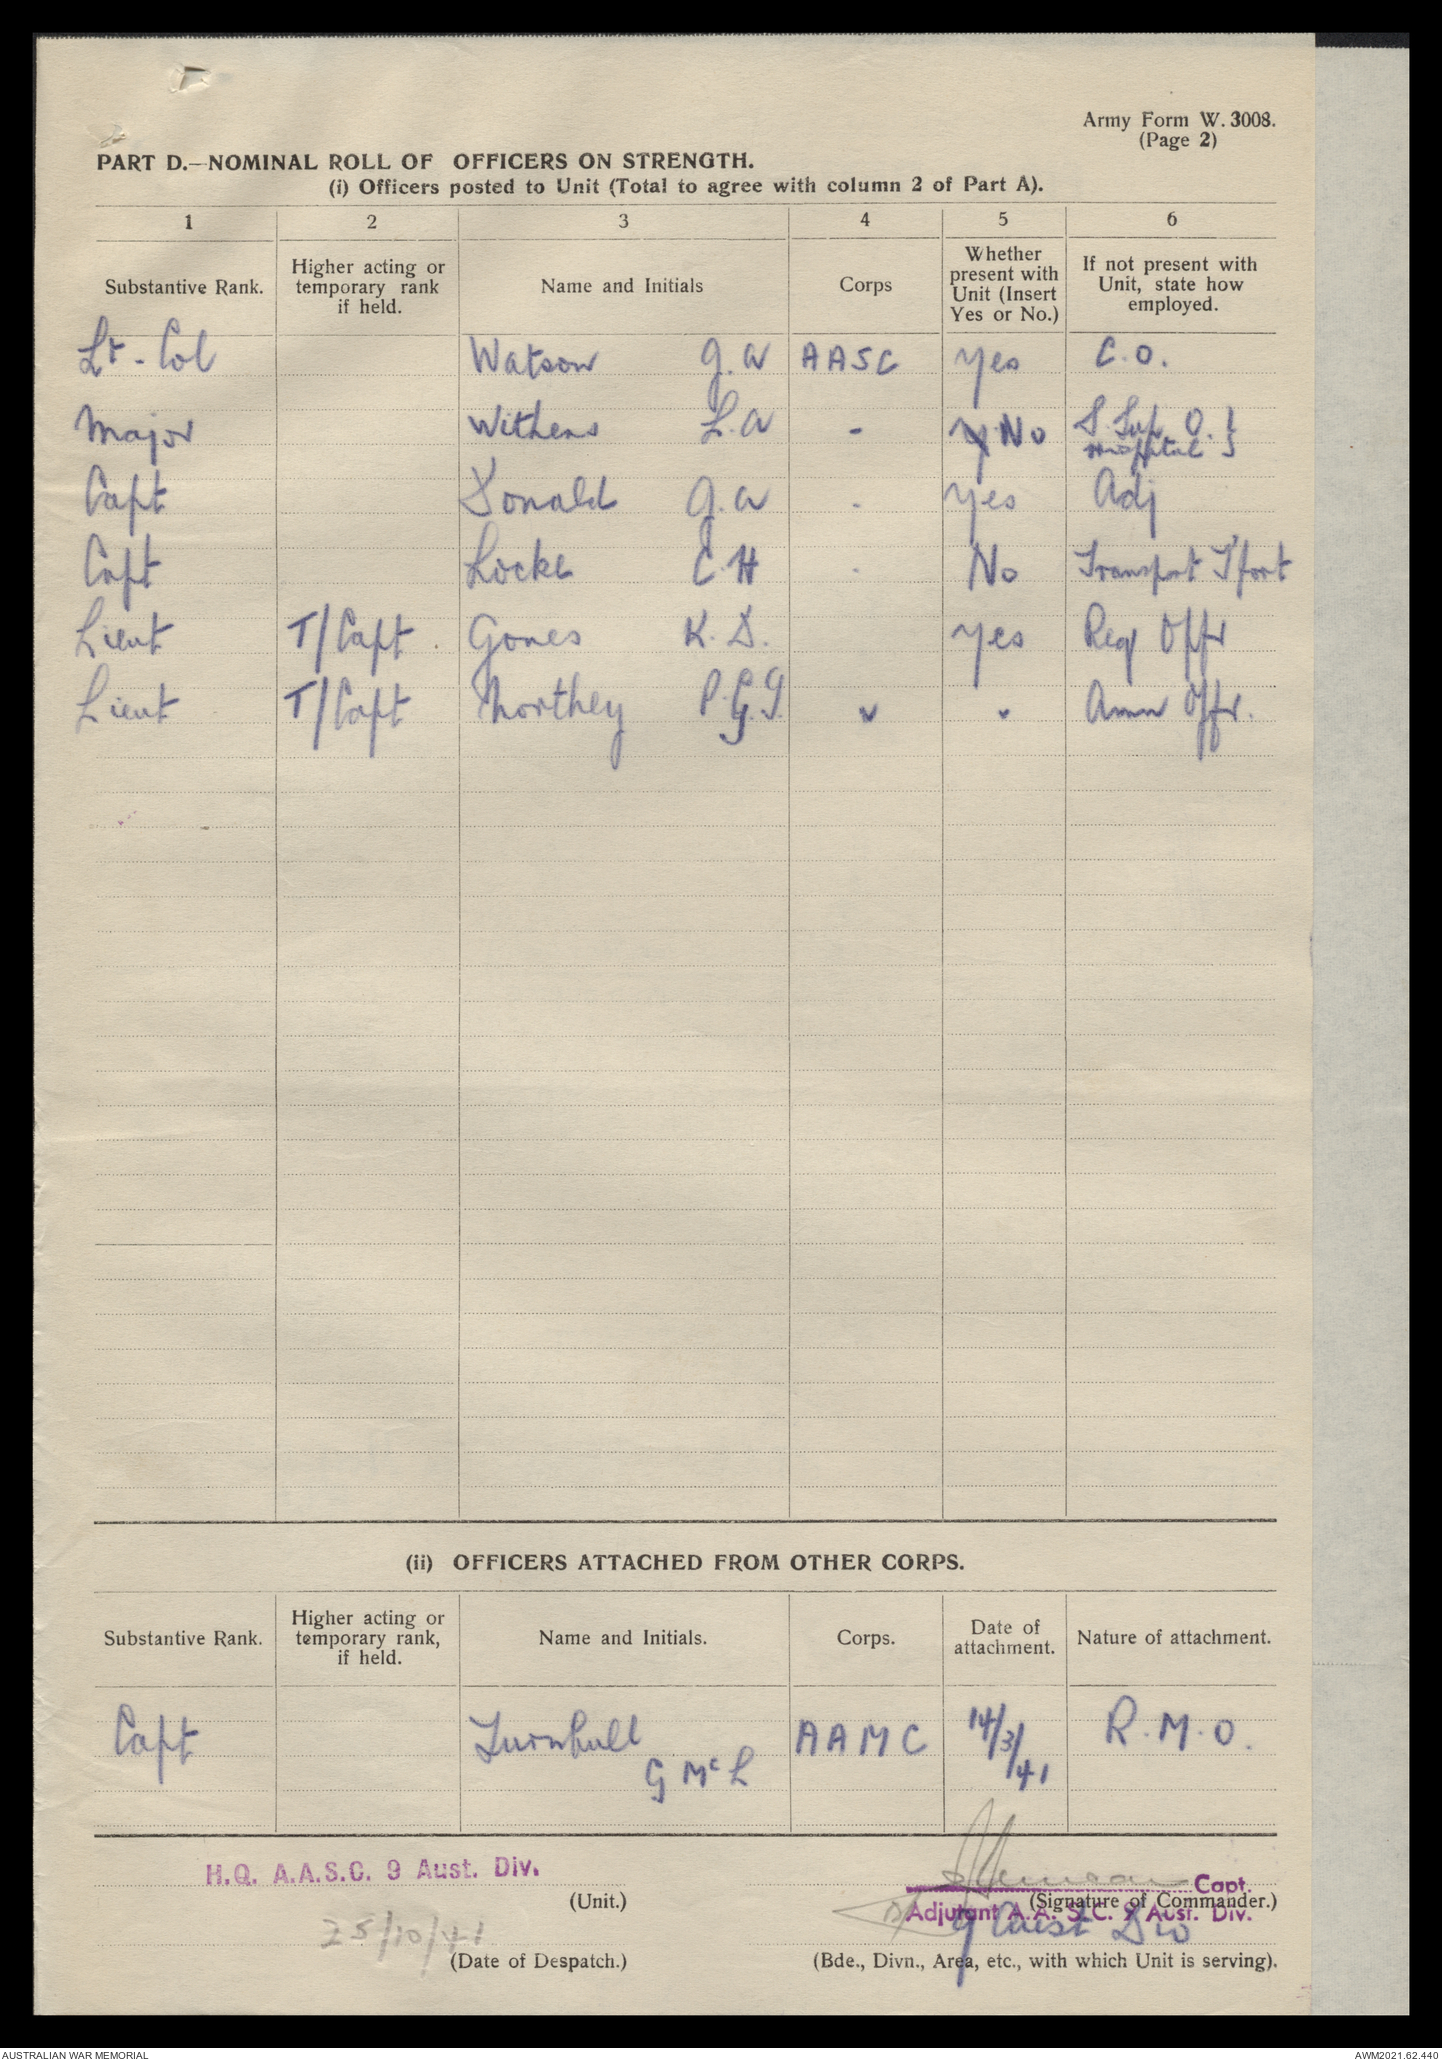 Army Form W. 3008.
(Page 2)
PART D.—NOMINAL ROLL OF OFFICERS ON STRENGTH.
(i) Officers posted to Unit (Total to agree with column 2 of Part A).
1 2 3 4 5 6
Substantive Rank. Higher acting or temporary rank if held. Name and Initials Corps Whether present with Unit (Insert Yes or No.) If not present with Unit, state how employed.
Lt-Col Watson J.A AASC Yes C.O.
Major Withers L.A - No S. Sup O. }
Hospital }
Capt Donald J.A - Yes Adj
Capt Locke C.H - No Transport T'port
Lieut T/Capt. Jones K.D. Yes Req Offr
Lieut T/Capt Northey P.G.J. " " Amn Offr.
(ii) OFFICERS ATTACHED FROM OTHER CORPS.
Substantive Rank. Higher acting or temporary rank, if held. Name and Initials. Corps. Date of attachment. Nature of attachment.
Capt Turnbull G McL AAMC 14/3/41 R.M.O.
H.Q. A.A.S.C. 9 Aust. Div.
(Unit.)
Capt.
(Signature of Commander.)
Adjutant A.A.S.C. 9 Aust. Div.
9 Aust Div
25/10/41
(Date of Despatch.)
(Bde., Divn., Area, etc., with which Unit is serving).
AUSTRALIAN WAR MEMORIAL
AWM2021.62.440